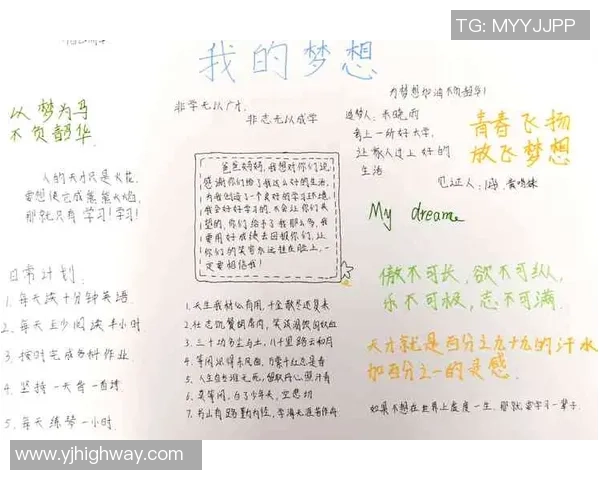 TG: MYYJJPP
我的梦想
以梦为马
不负韶华
人的天才只是火花,
要想使它成熊熊火焰,
那就只有学习!学习!
日常计划.
1. 每天读十分钟英语.
2. 每天至少阅读半小时
3. 按时完成各科作业
4. 坚持一天背一首诗
5. 每天练琴一小时.
非学无以广才,
非志无以成学
爸爸妈妈,我想对你们说,
感谢你们给了我这么好的生活,
为我创造了一个良好的学习环境.
我会好好学习的,不会让你们失
望的,你们给予了我那么多,我
要用好成绩去回报你们,让
你们的笑容永远挂在脸上,一
定要相信我!
1. 天生我材必有用,千金散尽还复来
2. 壮志饥餐胡虏肉,笑谈渴饮匈奴血
3. 三十功名尘与土,八千里路云和月
4. 等闲识得东风面,万紫千红总是春
5. 人生自古谁无死,留取丹心照汗青
6. 莫等闲,白了少年头,空悲切
7. 书山有路勤为径,学海无涯苦作舟
为梦想加油不负韶华!
追梦人:
考上一所好大学,
让家人过上好的
生活
见证人:
青春飞扬
放飞梦想
My dream
傲不可长,欲不可纵,
乐不可极,志不可满.
天才就是百分之九十九的汗水
加百分之一的灵感.
如果不想在世界上虚度一生,那就要学习一辈子.
www.yjhighway.com